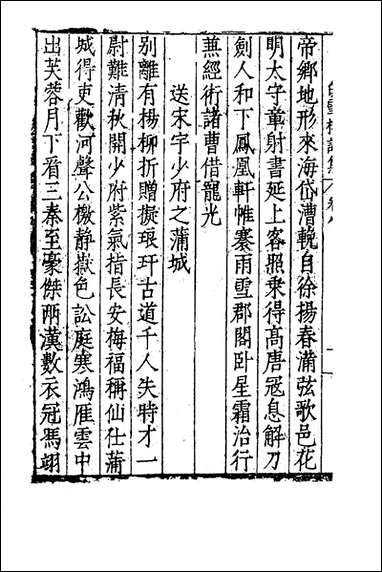 帝鄉地形來海岱漕輓自徐揚春滿弦歌邑花
明太守章射書延上客照乘得高唐冦息解刀
劍人和下鳳凰軒帷褰雨雪郡閣卧星霜治行
兼經術諸曹借寵光
送宋字少府之蒲城
別離有楊柳折贈擬琅玕古道千人失特才一
尉難清秋開少府紫氣指長安梅福稱仙仕蒲
城得吏歡河聲公檄静嶽色訟庭寒鴻雁雲中
出芙蓉月下看三秦至豪傑兩漢數衣冠馮翊